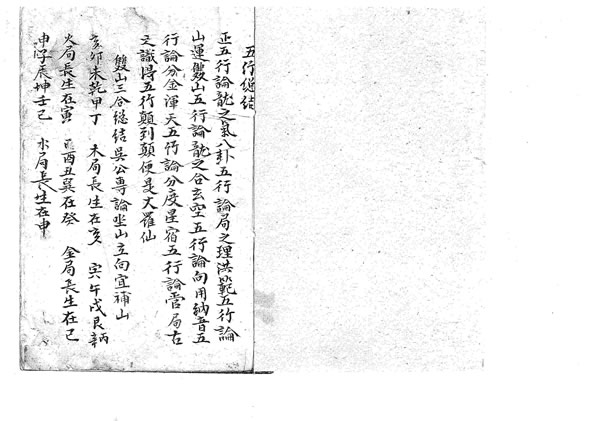 五行總結
正五行論龍之氣八卦五行論局之理洪範五行論
山運雙山五行論龍之合玄空五行論向用納音五
行論分金渾天五行論分度星宿五行論霄局古
之識得五行顛到顛便是大羅仙
雙山三合總結吳公專論坐山立向宜補山
亥卯未乾甲丁　木局長生在亥　寅午戌艮辛丙
火局長生在寅　巳酉丑巽在癸　金局長生在巳
申子辰坤壬乙　水局長生在申